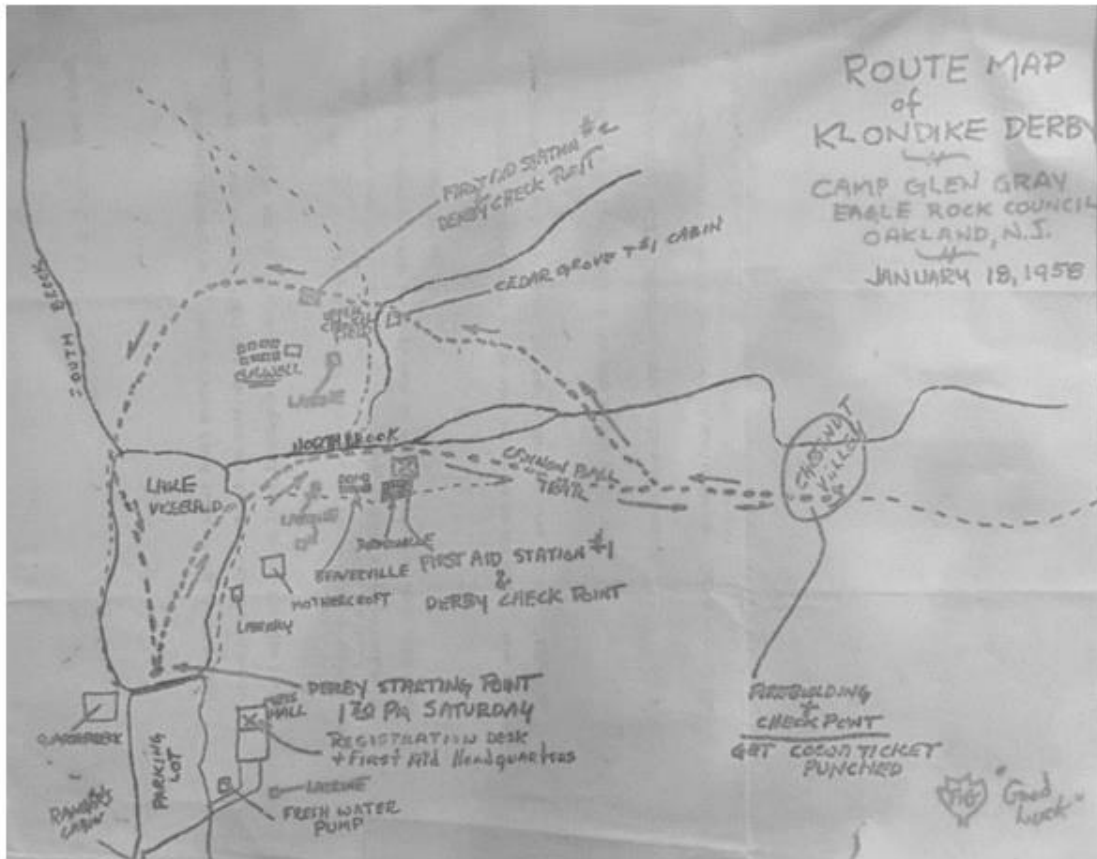 ROUTE MAP
of
KLONDIKE DERBY
CAMP GLEN GRAY
EAGLE ROCK COUNCIL
OAKLAND, N.J.
JANUARY 18, 1958
FIRST AID STATION #2
DERBY CHECK POINT
CEDAR GROVE + #1 CABIN
SOUTH BROOK
LATRINE
NORTH BROOK
CANNON BALL
TRAIL
CHESTNUT
VALLEY
LAKE
VREELAND
LATRINE
BEAVERVILLE
FIRST AID STATION #1
&
DERBY CHECK POINT
MOTHERCROFT
LIBRARY
DERBY STARTING POINT
1:30 PM SATURDAY
MESS
HALL
REGISTRATION DESK
+ FIRST AID HEADQUARTERS
PARKING
LOT
LATRINE
FRESH WATER
PUMP
CABIN
FIREBUILDING
+
CHECK POINT
GET COCOA TICKET
PUNCHED
"Good
Luck"